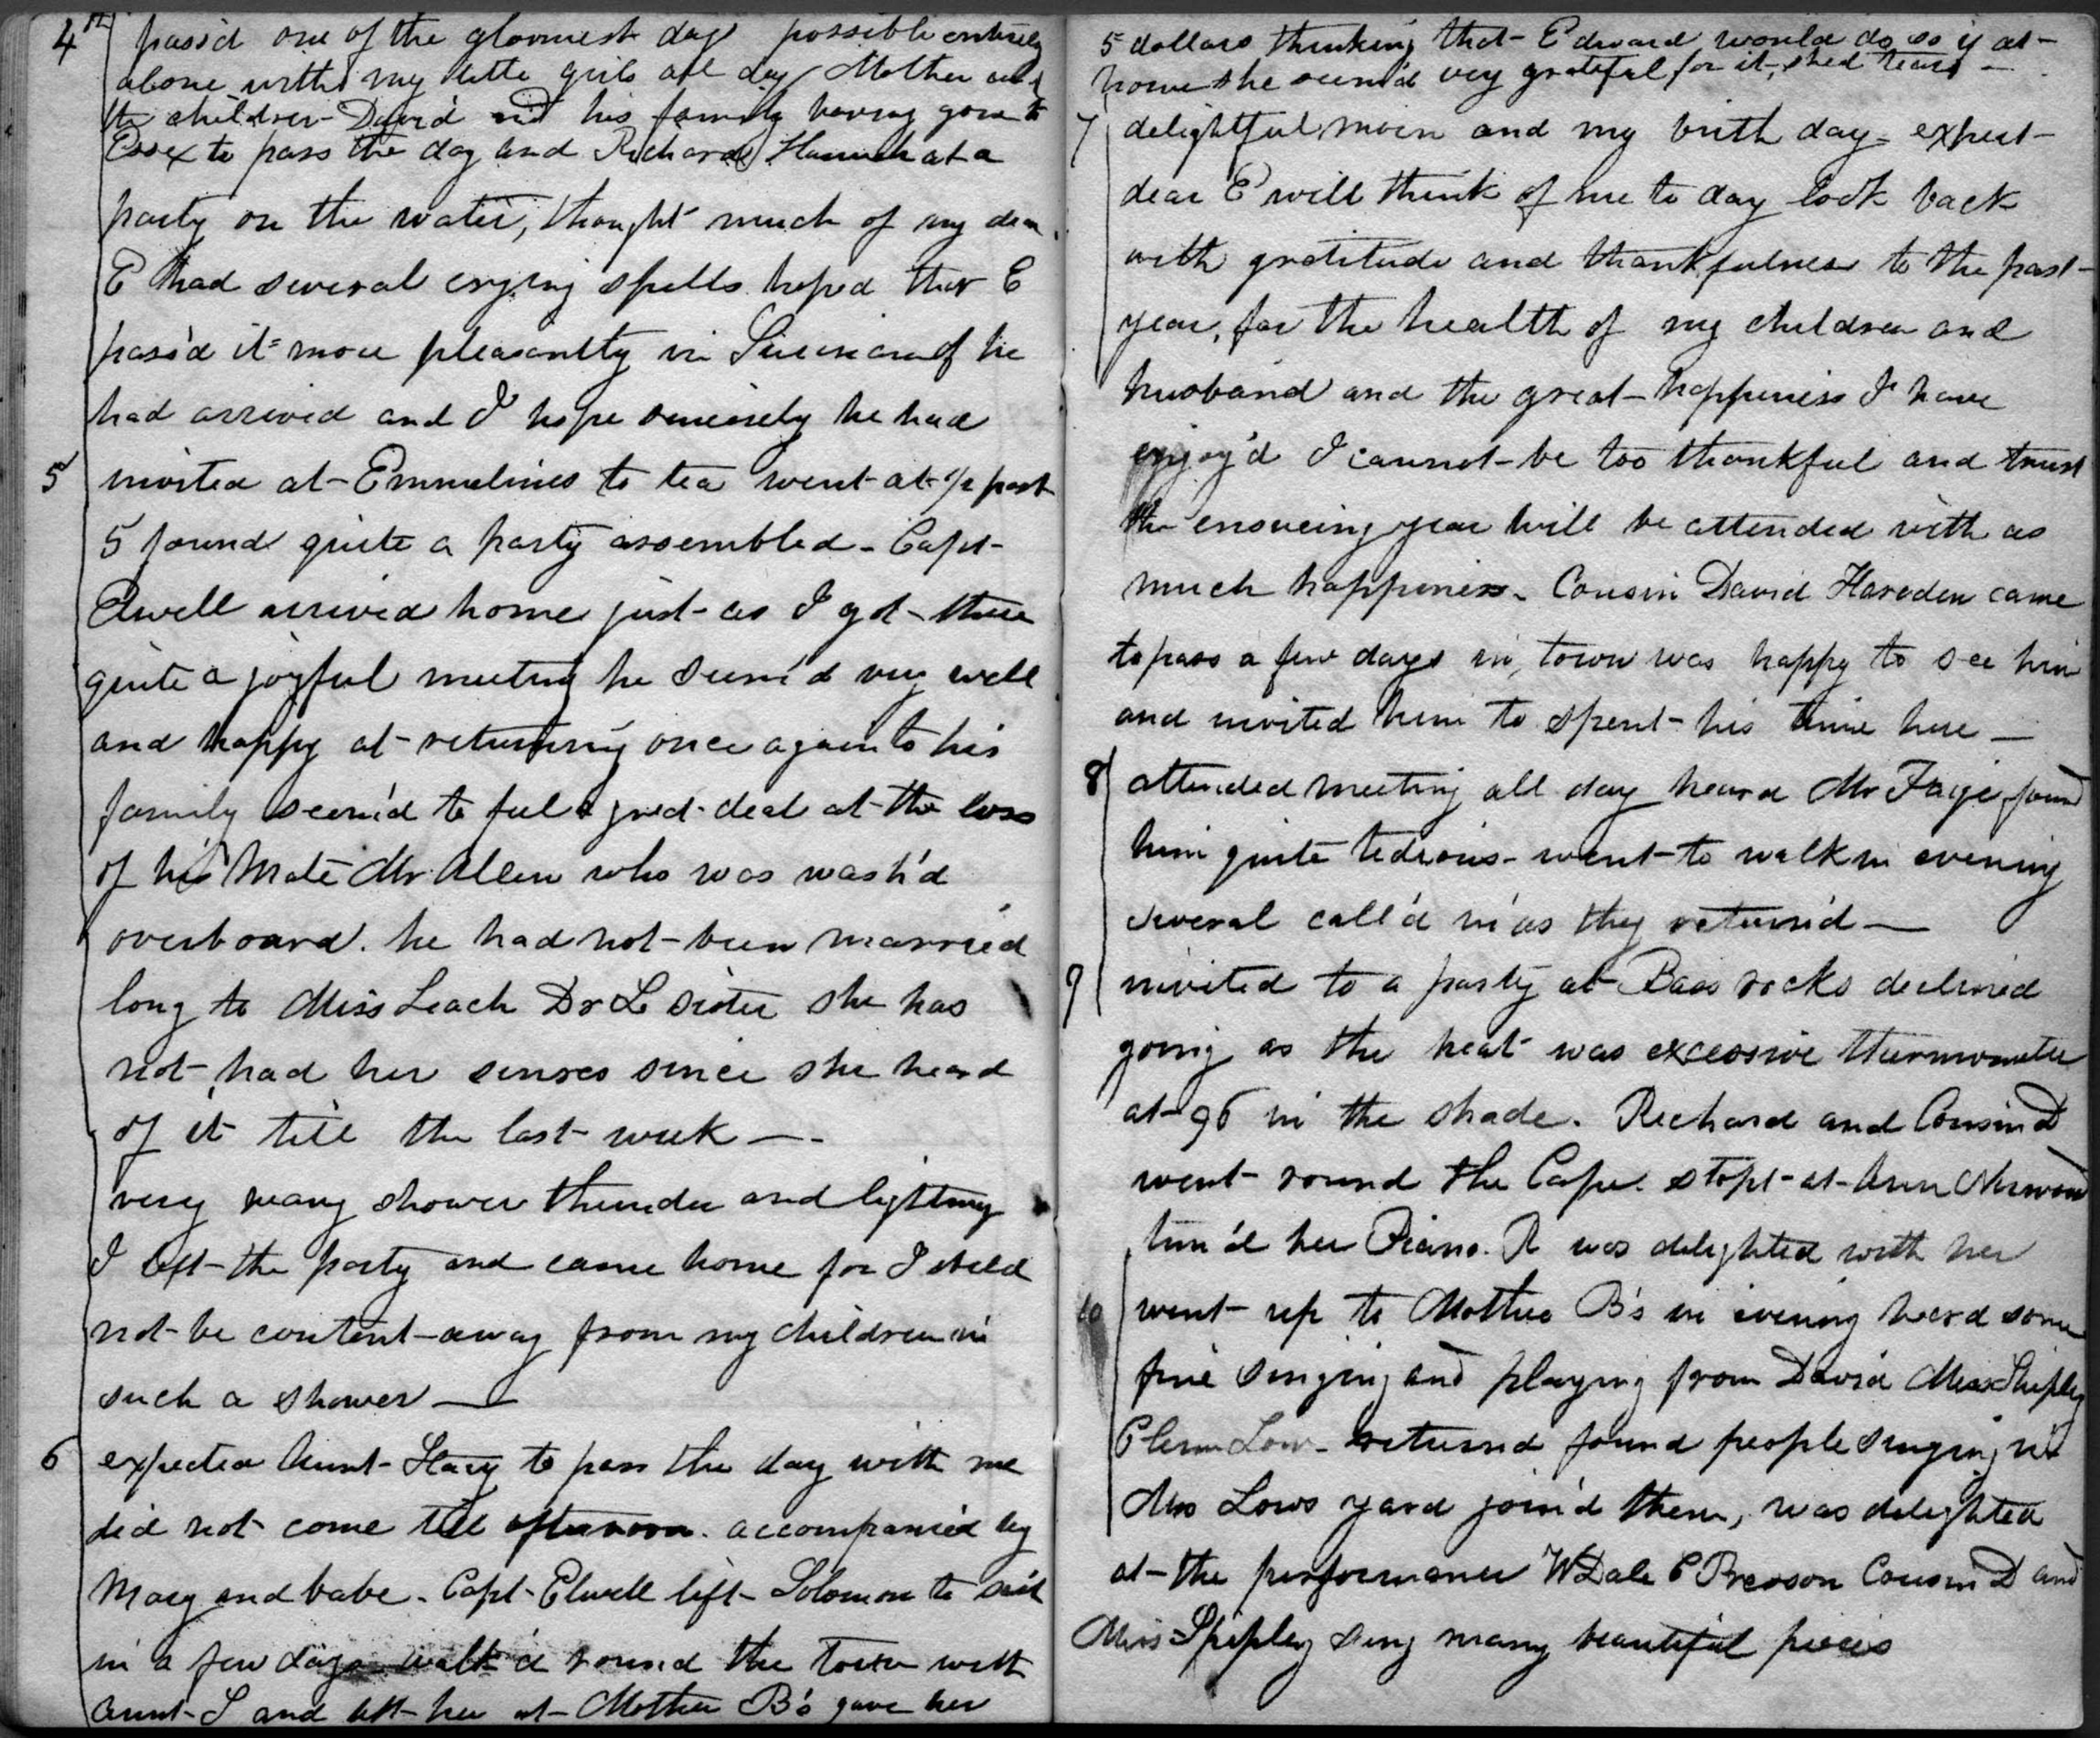 4th pass'd one of the gloomiest days possible entirely
alone with my little girls all day Mother and
the children David and his family having gone to
Essex to pass the day and Richard Hannah at a
party on the water, thought much of my dear
E had several crying spells hoped that E
pass'd it more pleasantly in if he
had arrived and I hope sincerely he had
5 invited at Emmelines to tea went at 1/2 past
5 found quite a party assembled - Capt
Elwell arrived home just as I got there
quite a joyful meeting he seem'd very well
and happy at returning once again to his
family seem'd to feel a good deal at the loss
of his Mate Mr Allen who was wash'd
overboard. he had not been married
long to Miss Leach Dr L sister she has
not had her senses since she heard
of it till the last week —
very shower thunder and lightning
I left the party and came home for I could
not be content away from my children in
such a shower —
6 expected Aunt Stacy to pass the day with me
did not come till afternoon. accompanied by
Mary and babe - Capt Elwell left Solomon to sail
in a few days walk'd round the town with
Aunt S and left her at Mother B's gave her
5 dollars thinking that Edward would do so if at
home she seem'd very grateful for it, shed tears —
7 delightful morn and my birth day - expect
dear E will think of me to day look back
with gratitude and thankfulness to the past
year, for the health of my children and
husband and the great happiness I have
enjoy'd I cannot be too thankful and trust
the ensueing year will be attended with as
much happiness - Cousin David came
to pass a few days in town was happy to see him
and invited him to spent his time here —
8 attended meeting all day heard Mr found
him quite tedious - went to walk in evening
several call'd in as they returned —
9 invited to a party at Bass rocks declined
going as the heat was excessive thermometer
at 96 in the shade. Richard and Cousin D
went round the Cape. stopt at Ann
tun'd her Piano. R was delighted with her
10 went up to Mother B's in evening heard some
fine singing and playing from David Miss Shipley
Low - returned found people singing in
Mrs Lows yard join'd them, was delighted
at the performance W Dale Cousin D and
Miss Shipley sung many beautiful pieces